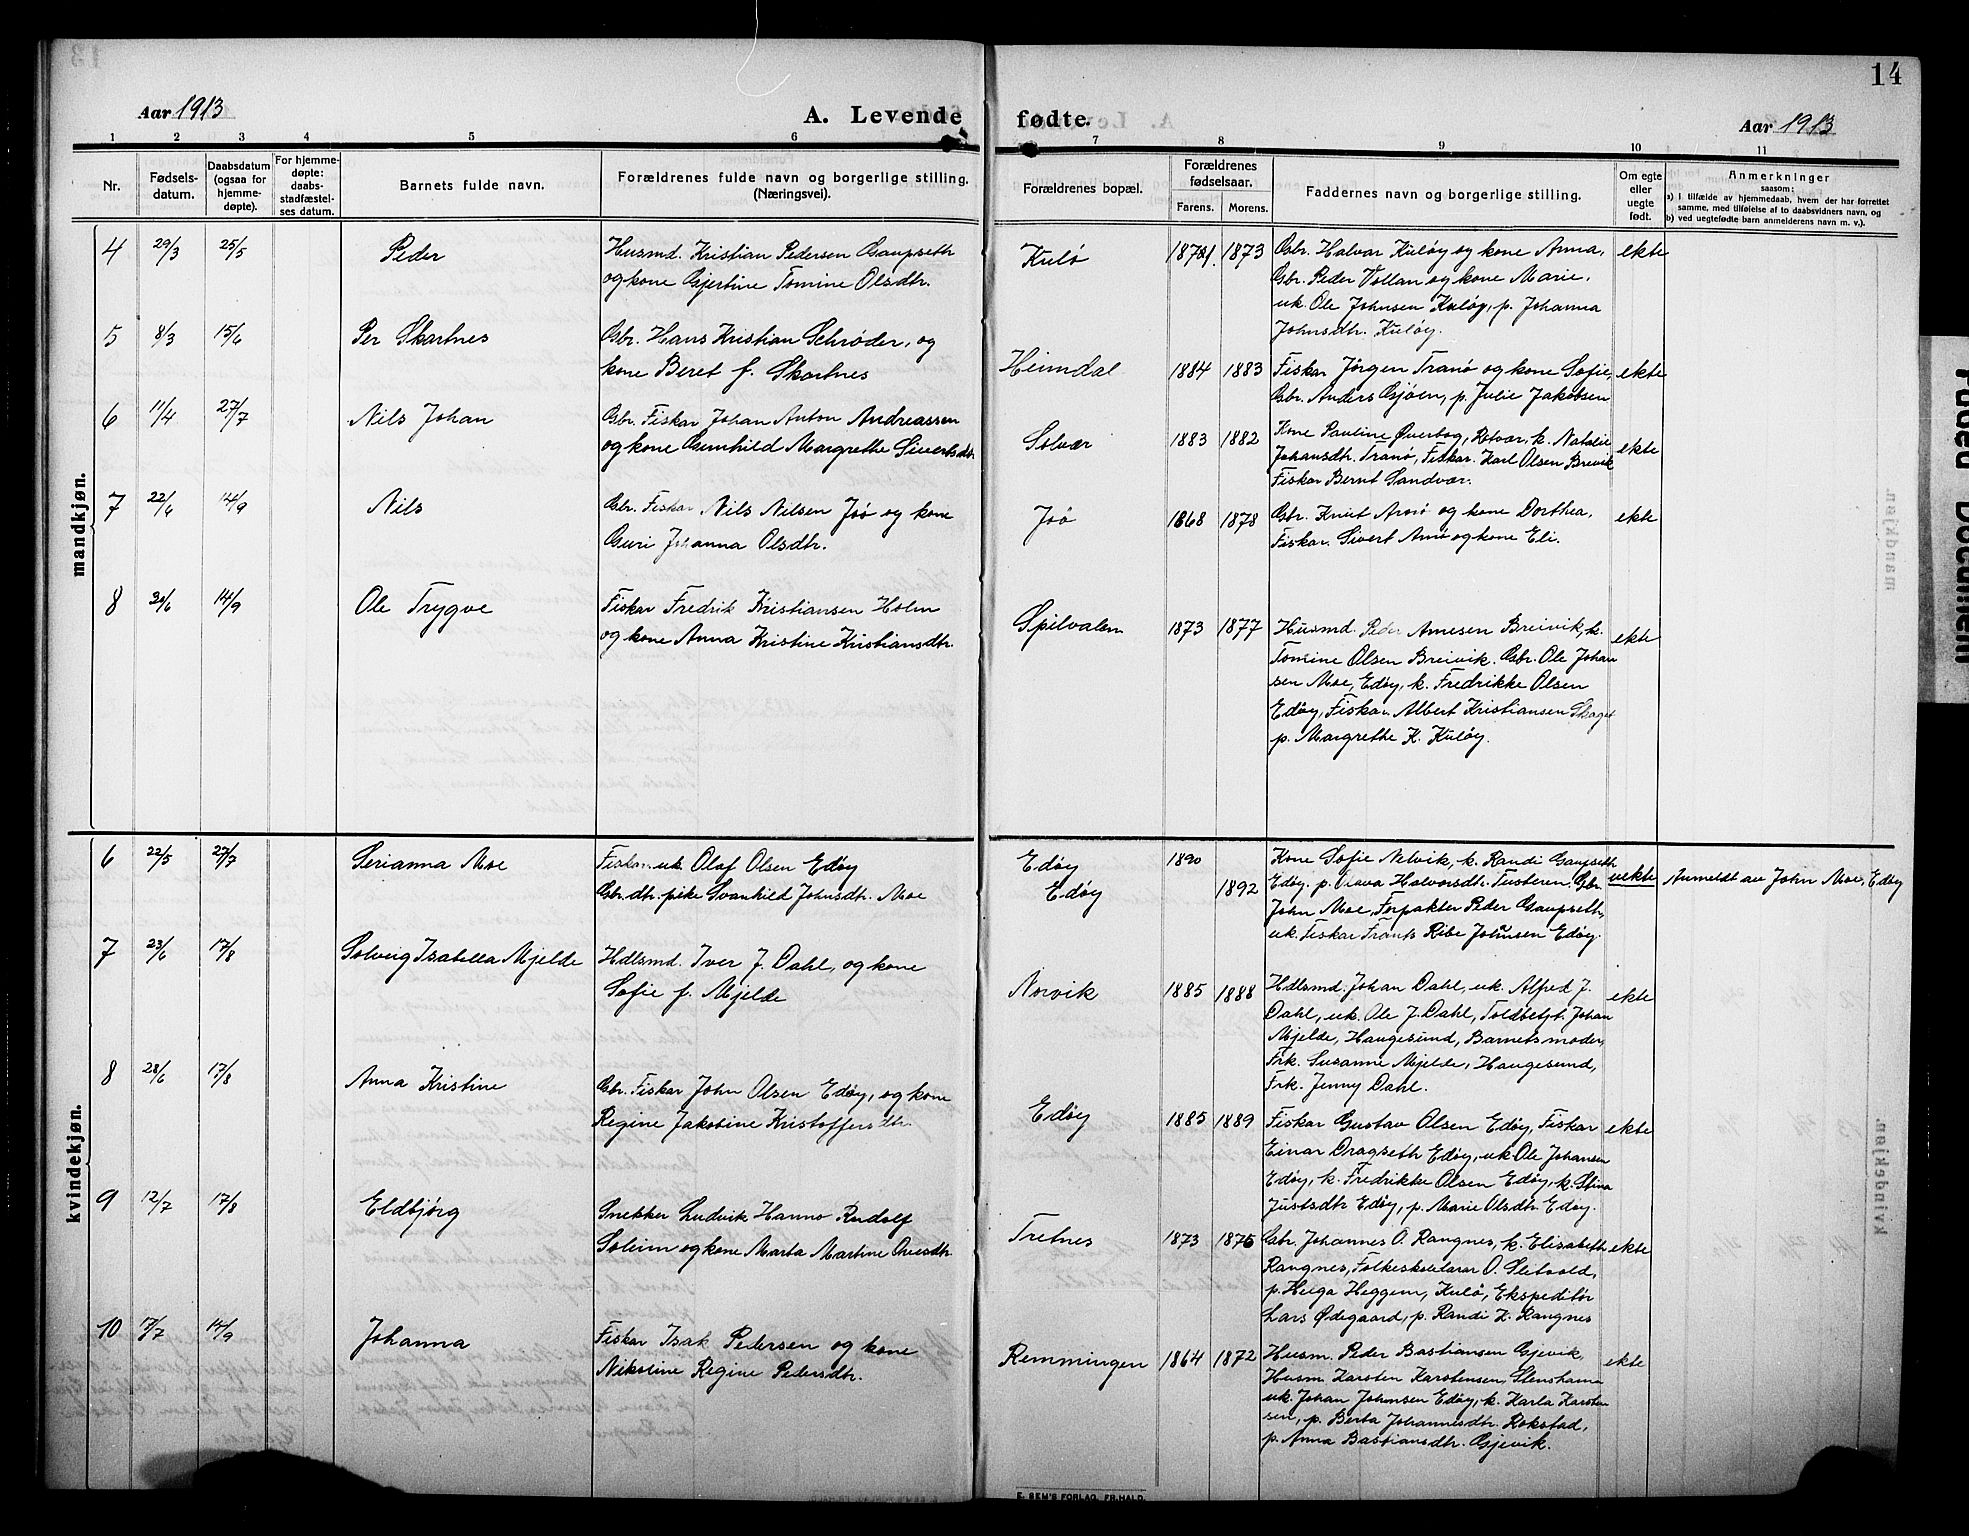 14
Aar 1913
A. Levende fødte.
Aar 1913
1 2 3 4 5 6 7 8 9 10 11
Nr.
Fødsels-
datum.
Daabsdatum
(ogsaa for
hjemme-
døpte).
For hjemme-
døpte:
daabs-
stadfæstel-
ses datum.
Barnets fulde navn.
Forældrenes fulde navn og borgerlige stilling.
(Næringsvei).
Forældrenes bopæl.
Forældrenes
fødselsaar.
Farens. Morens.
Faddernes navn og borgerlige stilling.
Om egte
eller
uegte
født.
Anmerkninger
saasom:
a) I tilfælde av hjemmedaab, hvem der har forrettet
samme, med tilføielse af to daabsvidners navn, og
b) ved uegtefødte barn anmelderens navn m. v.).
mandkjøn.
4 29/3 25/5 Peder
Husmd. Kristian Pedersen Gaupseth
og kone Gjertine Tomine Olsdtr.
Kulø 1871. 1873
Gbr. Halvar Kuløy og kone Anna,
Gbr. Peder Vollan og kone Marie,
uk. Ole Johnsen Kuløy, p. Johanna
Johnsdtr. Kuløy.
ekte
5 8/3 15/6 Per Skartnes
Gbr. Hans Kristian Schrøder, og
kone Beret f. Skartnes
Heimdal 1884 1883
Fiskar Jörgen Tranø og kone Sofie,
Gbr. Anders Gjøen, p. Julie Jakobsen
ekte
6 11/4 27/7 Nils Johan
Gbr. Fiskar Johan Anton Andreassen
og kone Gunhild Margrethe Sivertsdtr
Solvær 1883 1882
Kone Pauline Øverbog, Rotvær, k. Natalie
Johansdtr. Tranø, Fiskar. Karl Olsen Breivik
Fiskar Bernt Sandvær.
ekte
7 22/6 14/9 Nils
Gbr. Fiskar Nils Nilsen Jøø og kone
Guri Johanna Olsdtr.
Jøø 1868 1878
Gbr. Knut Arnø og kone Dorthea,
Fiskar Sivert Arnø og kone Eli.
ekte
8 30/6 14/9 Ole Trygve
Fiskar Fredrik Kristiansen Holm
og kone Anna Kristine Kristiansdtr.
Spilvalen 1873 1877
Husmd. Peder Arnesen Breivik, k.
Tomine Olsen Breivik. Gbr. Ole Johan
sen Moe, Edøy, k. Fredrikke Olsen
Edøy, Fiskar Albert Kristiansen Skaget
p. Margrethe K. Kuløy.
ekte
kvindekjøn.
6 22/5 27/7 Serianna Moe
Fiskar uk. Olaf Olsen Edøy
Gbr.dtr. pike Svanhild Johnsdtr. Moe
Edøy 1890
Edøy 1892
Kone Sofie Nelvik, k. Randi Gaupseth
Edøy. p. Olava Halvorsdtr. Tusteren. Gbr.
John Moe, Forpakter Peder Gaupseth,
uk. Fiskar Frants Ribe Johnsen Edøy.
uekte
Anmeldt av John Moe, Edøy
7 23/6 17/8 Solveig Isabella Mjelde
Hdlsmd. Iver J. Dahl, og kone
Sofie f. Mjelde
Norvik 1885 1888
Hdlsmd. Johan Dahl, uk. Alfred J.
Dahl, uk. Ole J. Dahl, Toldbetjt. Johan
Mjelde, Haugesund, Barnets moder,
Frk. Susanne Mjelde, Haugesund,
Frk. Jenny Dahl.
ekte
8 28/6 17/8 Anna Kristine
Gbr. Fiskar John Olsen Edøy, og kone
Regine Jakobine Kristoffersdtr.
Edøy 1885 1889
Fiskar Gustav Olsen Edøy, Fiskar
Einar Dragseth Edøy, uk Ole Johansen
Edøy, k. Fredrikke Olsen Edøy, k. Stina
Justsdtr Edøy, p. Marie Olsdtr. Edøy.
ekte
9 12/7 17/8 Eldbjörg
Snekker Ludvik Hanno Rudolf
Soleim og kone Marta Martine Ovesdtr
Tretnes 1873 1875
Gbr. Johannes O. Rangnes, k. Elisabeth
Rangnes, Folkeskolelærar O. Sletvold,
p. Helga Heggem, Kulø, Ekspeditör
Lars Ødegaard, p. Randi L. Rangnes
ekte
10 17/7 14/9 Johanna
Fiskar Isak Pedersen og kone
Nikoline Regine Pedersdtr.
Remmingen 1864 1872
Husm. Peder Bastiansen Gjevik,
Husm. Karsten Karstensen, Stenshamn
uk. Johan Johnsen Edøy, k. Karla Karsten
sen, p. Berta Johannesdtr. Rokstad,
p. Anna Bastiansdtr. Gjevik.
ekte
E. SEM'S FORLAG, FR.HALD.